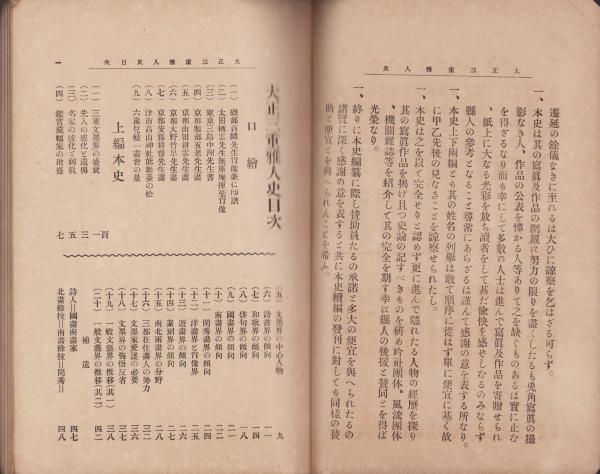 大正三重雅人史
遷延の餘儀なきに至れるは大ひに諒察を乞はざる可らず。
一、本史は其の寫眞及作品の網羅に努力の限りを盡くしたるも兎角寫眞の撮
影なき人、作品の公表を憚かる人等ありて之を缺くものあるは實に止む
を得ざるなり而も幸にして多數の人士は進んで寫眞及作品を寄贈せられ
、紙上に大なる光彩を放ち讀者をして甚だ愉快を感せしむるのみならず
縣人の參考となること尋常にあらざるは謹んで感謝の意を表する所なり。
一、本史上下兩編とも其の姓名の列擧は敢て順序に從はず單に便宜に基く故
に甲乙先後の見なきことを諒察せられたし。
一、本史は之を以て完全せりと認めず更に進んで隱れたる人物の經歷を探り
其の寫眞作品を揭げ且つ史論の記すべきものを硏め吟社團体、風流團体
、機關雜誌等を紹介して其の完全を期す幸に縣人の後援と賛同とを得ば
光榮なり。
一、終りに本史編纂に際し賛助員たるの承諾と多大の便宜を與へられたるの
諸賢に深く感謝の意を表すると共に本史續編の發刊に對しても同樣の賛
助と便宜とを與へられんことを希ふ。
大正三重雅人史目次
一
大正三重雅人史目次
口繪
(一)磯部百鱗先生肖像並に印譜
(二)太田栖雲先生無庵庵揮毫肖像
(三)東京三島中洲先生書
(四)京都服部五老先生書
(五)京都山田耕雲先生畫
(六)京都大野竹呈先生畫
(七)京都安藤耕齋先生畫
(八)津市高山神社能舞臺の松
(九)六歲兒競一畫會の景
上編本史
(一)三重文墨界の盛衰 一頁
(二)先代人の感化と遺傳 三
(三)名家の感化と刺戟 五
(四)鑑賞藏幅家の增盛 七
(五)文墨界の中心人物 九
(六)詩書界の傾向 一一
(七)和歌界の傾向 一四
(八)俳句界の傾向 一八
(九)國畫界の傾向 二一
(十)南畫界の傾向 二二
(十一)閨秀畫界の傾向
(十二)洋畫界と肖像畫 二五
(十三)遊藝界の傾向
(十四)篆刻界の傾向
(十五)南北兩畫界の分野
(十六)三都在住畫人の努力 三二
(十七)文墨家愛護の必要
(十八)文墨界の悔悟反省 三七
(十九)一般文藝界の推移(其一) 三八
(二十)一般文藝界の推移(其二) 四二
補遺
詩人‖國畫南畫家 四六
北畫餘技‖南畫餘技‖閨秀‖ 四八